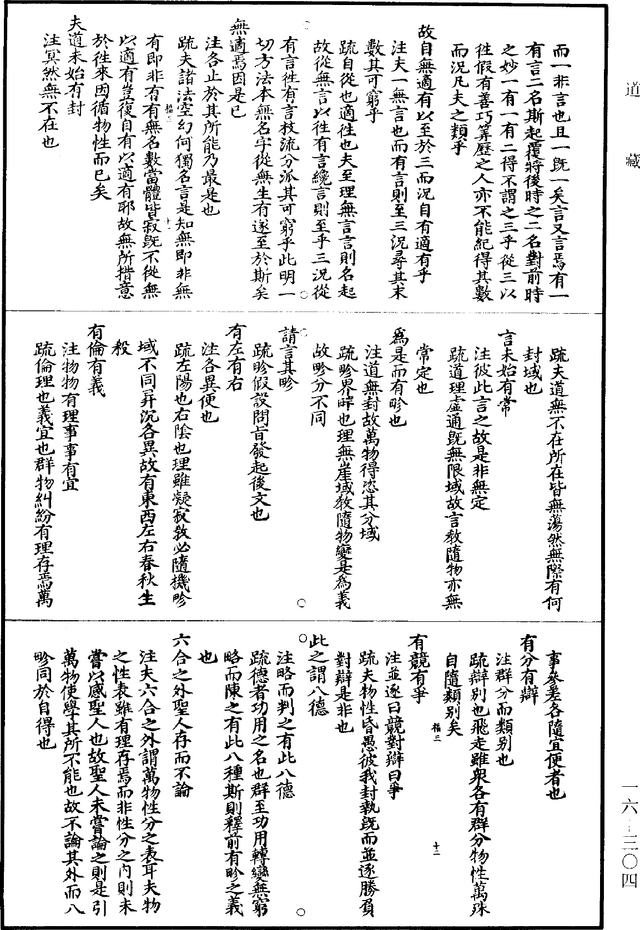 道藏
而一非言也且一既一矣言又言焉有一
有言二名斯起覆將後時之二名對前時
之妙一有一有二得不謂之三乎從三以
往假有善巧筭曆之人亦不能紀得其數
而況凡夫之類乎
故自無適有以至於三而況自有適有乎
注夫一無言也而有言則至三況尋其末
數其可窮乎
疏自從也適往也夫至理無言言則名起
故從無言以往有言纔言則至乎三況從
有言往有言枝流分派其可窮乎此明一
切方法本無名字從無生有遂至於斯矣
無適焉因是已
注各止於其所能乃最是也
疏夫諸法空幻何獨名言是知無即非無
有即非有有無名數當體皆寂既不從無
以適有豈復自有以適有耶故無所措意
於往來因循物性而已矣
夫道未始有封
注冥然無不在也
疏夫道無不在所在皆無蕩然無際有何
封域也
言未始有常
注彼此言之故是非無定
疏道理虛通既無限域故言教隨物亦無
常定也
為是而有畛也
注道無封故萬物得恣其分域
疏畛界畔也理無崖域教隨物變是為義
故畛分不同
請言其畛
疏畛假設問旨發起後文也
有左有右
注各異便也
疏左陽也右陰也理雖凝寂教必隨機畛
域不同昇沉各異故有東西左右春秋生
殺
有倫有義
注物物有理事事有宜
疏倫理也義宜也群物糾紛有理存焉萬
事參差各隨宜便者也
有分有辯
注群分而類別也
疏辯別也飛走雖眾各有群分物性萬殊
自隨類別矣
有競有爭
注並逐曰競對辯曰爭
疏夫物性昏愚彼我封執既而並逐勝負
對辯是非也
此之謂八德
注略而判之有此八德
疏德者功用之名也群至功用轉變無窮
略而陳之有此八種斯則釋前有畛之義
也
六合之外聖人存而不論
注夫六合之外謂萬物性分之表耳夫物
之性表雖有理存焉而非性分之內則未
嘗以感聖人也故聖人未嘗論之則是引
萬物使學其所不能也故不論其外而八
畛同於自得也
十二
一六·三〇四